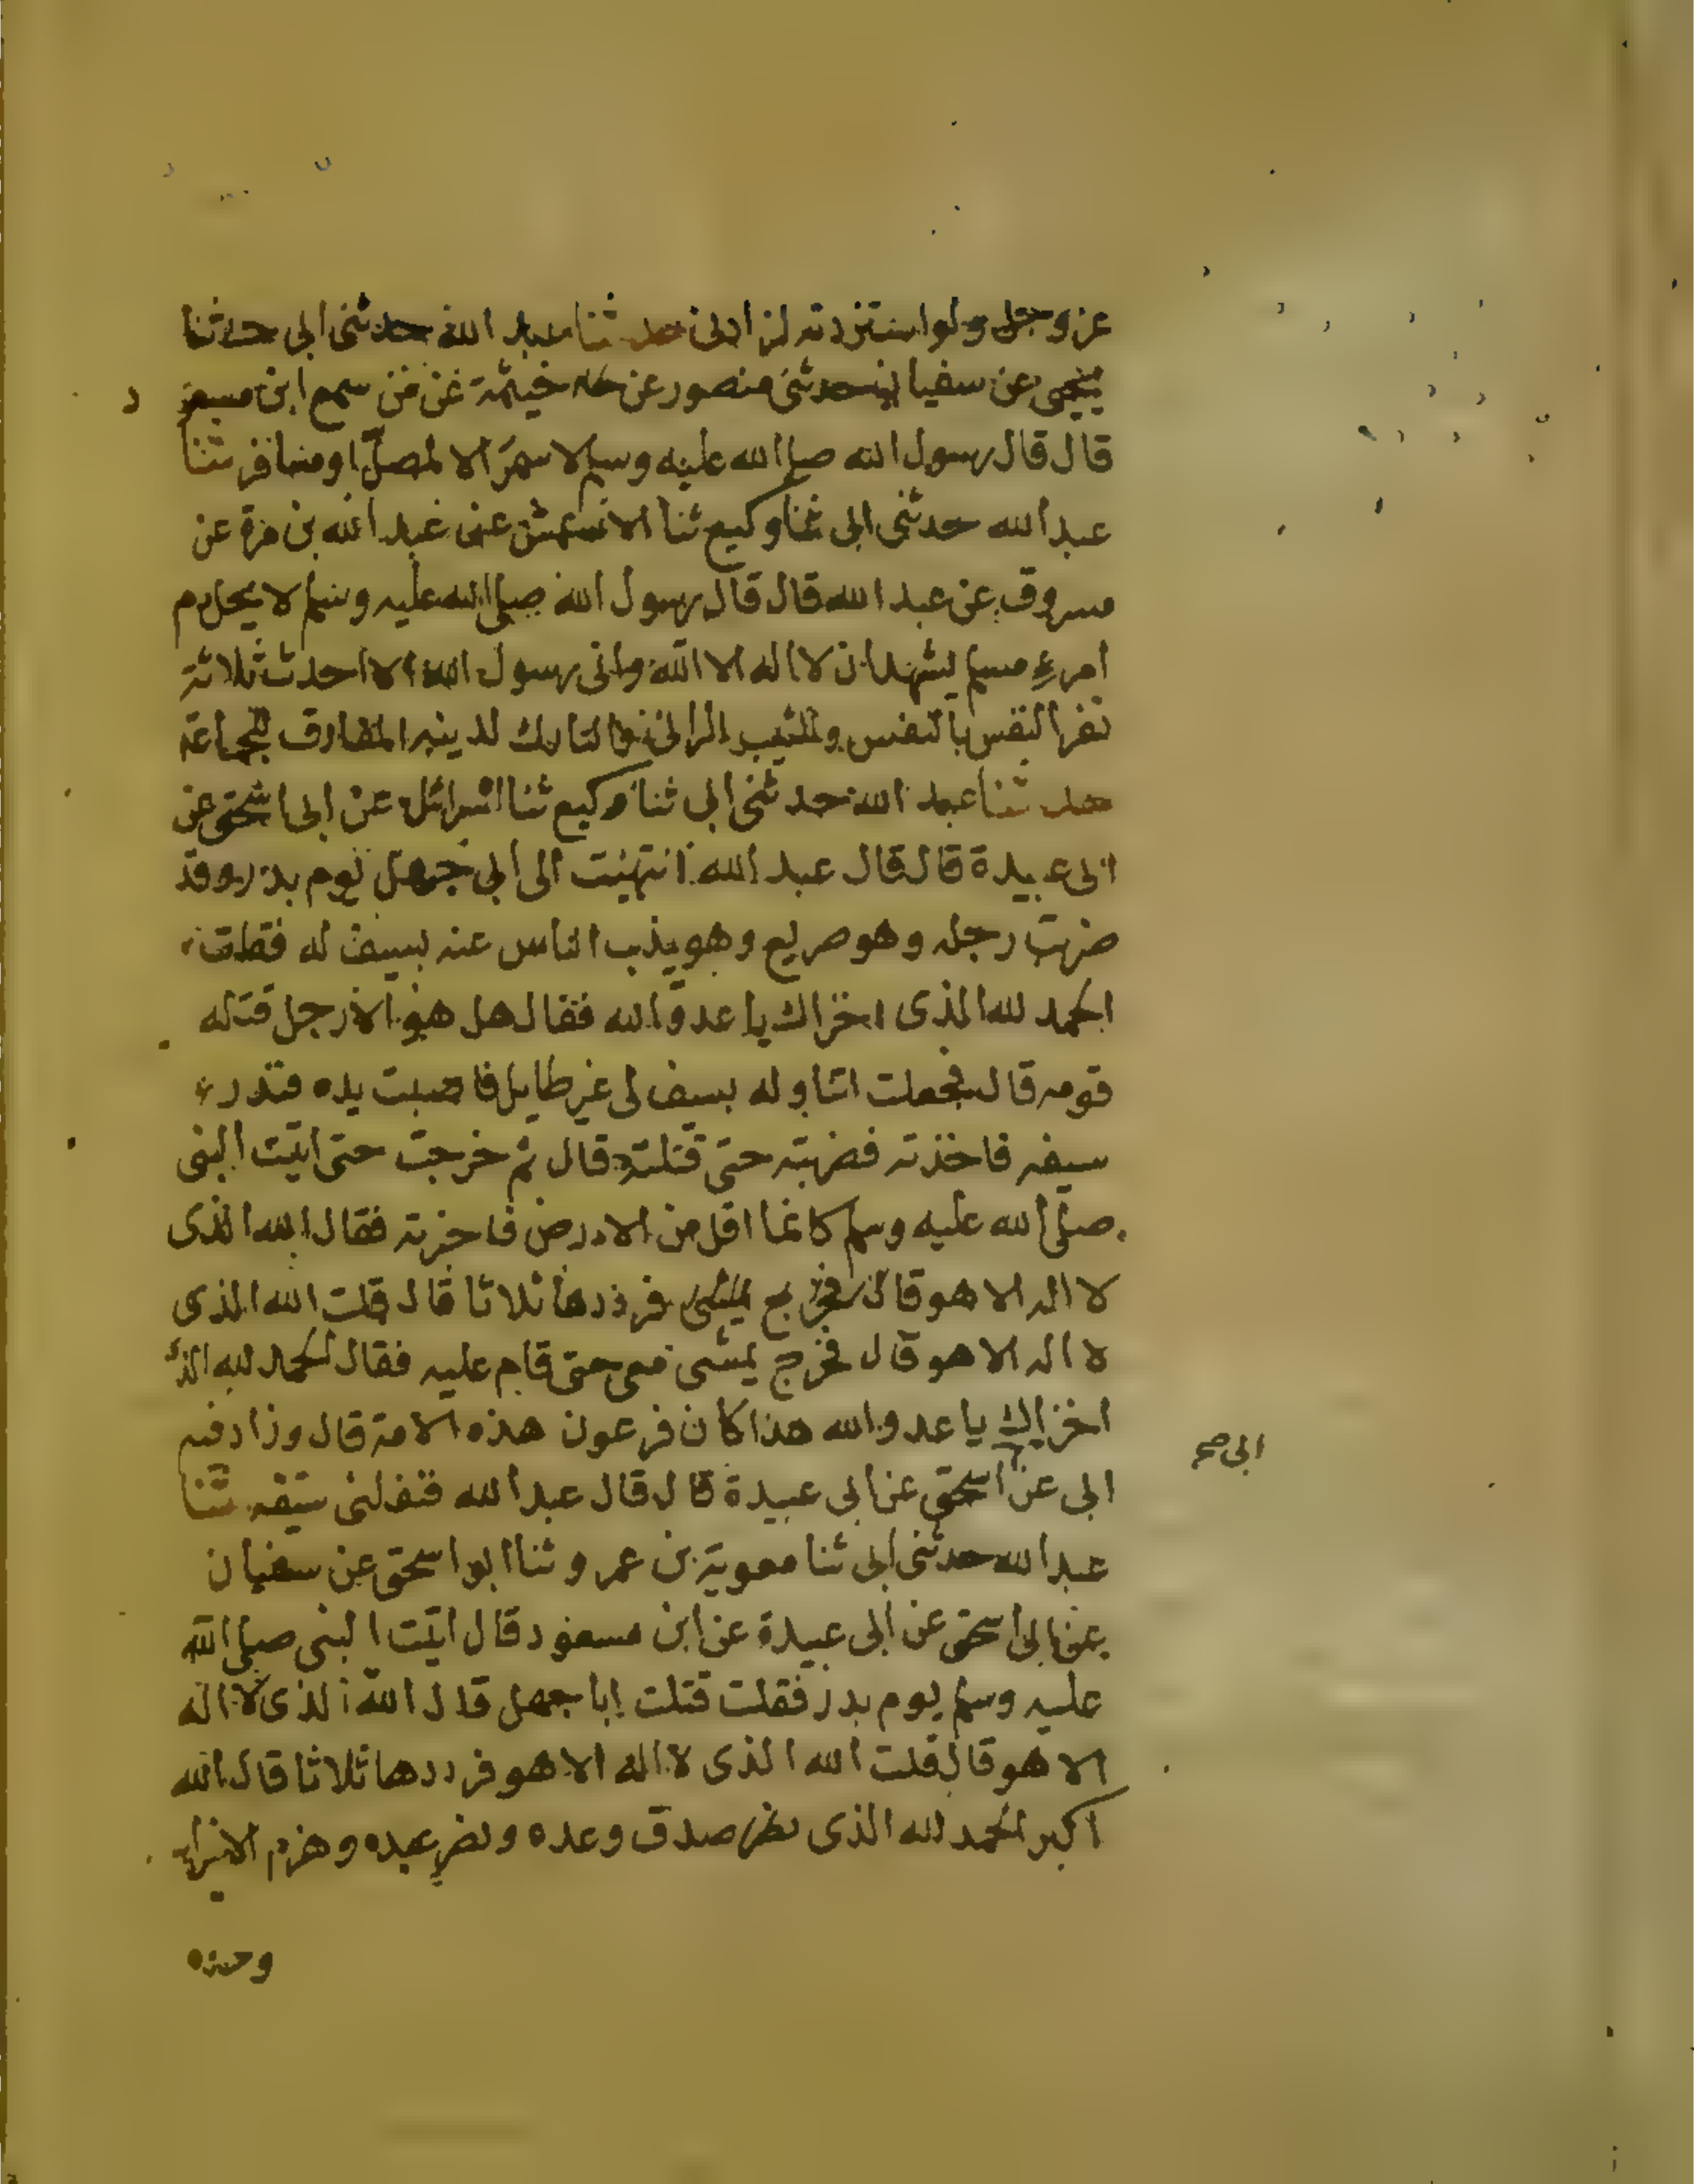 عز وجل ولو استزدته لزادنى حدثنا عبد الله حدثنى ابى حدثنا
يحيى عن سفيان حدثنى منصور عن خيثمة عن من سمع ابن مسعود
قال قال رسول الله صلى الله عليه وسلم لا سمر الا لمصل او مسافر ثنا
عبد الله حدثنى ابى ثنا وكيع ثنا الاعمش عن عبد الله بن مرة عن
مسروق عن عبد الله قال قال رسول الله صلى الله عليه وسلم لا يحل دم
امرء مسلم يشهد ان لا اله الا الله وانى رسول الله الا احد ثلاثة
نفر النفس بالنفس والثيب الزانى والتارك لدينه المفارق للجماعة
حدثنا عبد الله حدثنى ابى ثنا وكيع ثنا اسرائل عن ابى اسحق عن
ابى عبيدة قال قال عبد الله انتهيت الى ابى جهل يوم بدر وقد
ضربت رجله وهو صريع وهو يذب الناس عنه بسيف له فقلت
الحمد لله الذى اخزاك يا عدو الله فقال هل هو الا رجل قتله
قومه قال فجعلت اتناوله بسيف لى غير طايل فاصبت يده فندر
سيفه فاخذته فضربته حتى قتلته قال ثم خرجت حتى اتيت النبى
صلى الله عليه وسلم كانما اقل من الارض فاخبرته فقال الله الذى
لا اله الا هو قال فرددها ثلاثا قال قلت الله الذى
لا اله الا هو قال فخرج يمشى معى حتى قام عليه فقال الحمد لله الذى
اخزاك يا عدو الله هذا كان فرعون هذه الامة قال وزاد فيه
ابى عن اسحق عن ابى عبيدة قال قال عبد الله فنفلنى سيفه ثنا
ابى صح
عبد الله حدثنى ابى ثنا معوية بن عمرو ثنا ابو اسحق عن سفيان
عن ابى اسحق عن ابى عبيدة عن ابن مسعود قال اتيت النبى صلى الله
عليه وسلم يوم بدر فقلت قتلت ابا جهل قال الله الذى لا اله
الا هو قال قلت الله الذى لا اله الا هو فرددها ثلاثا قال الله
اكبر الحمد لله الذى صدق وعده ونصر عبده وهزم الاحزاب
وحده